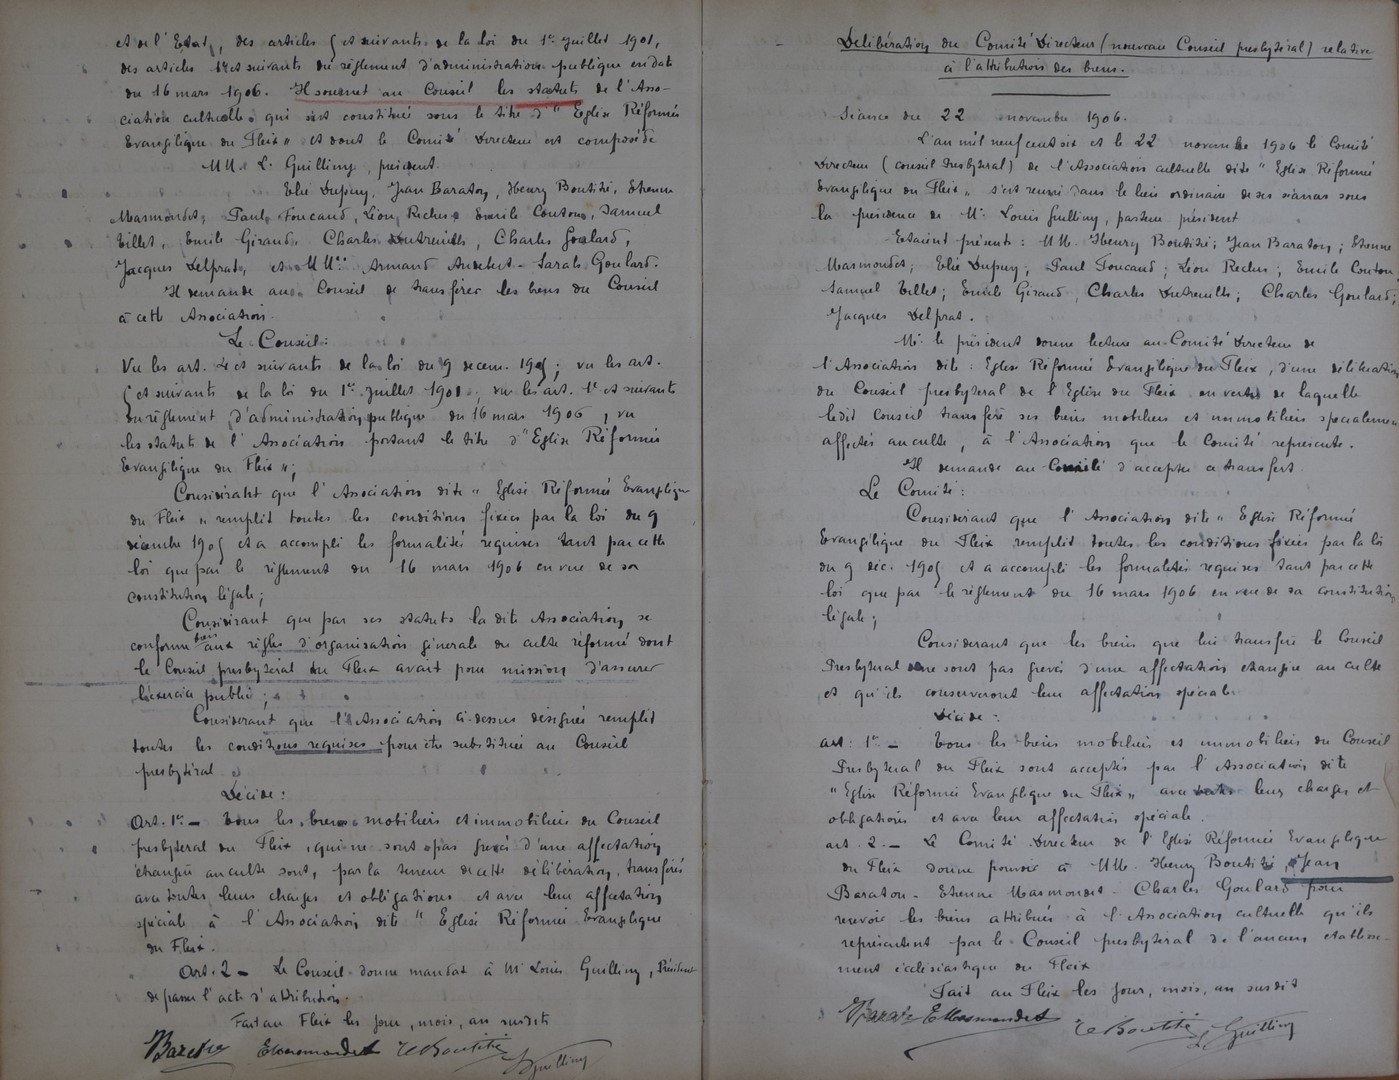 et de l'Etat, des articles 5 et suivants de la loi du 1er Juillet 1901,
des articles 1er et suivants du règlement d'administration publique en date
du 16 mars 1906. Il soumet au Conseil les statuts de l'Asso-
ciation cultuelle qui s'est constituée sous le titre d'"Eglise Réformée
Evangélique du Fleix" et dont le Comité Directeur est composé de
MM. L. Guilliny, président.
Elie Dupuy, Jean Baraton, Henry Boutité, Etienne
Marmondet, Paul Foucaud, Léon Reclus, Emile Couton, Samuel
Tillet, Emile Giraud, Charles Dutreuilh, Charles Goulard,
Jacques Delprat, et MMes Armand Audebert - Sarah Goulard.
Il demande au Conseil de transférer les biens du Conseil
à cette Association.
Le Conseil:
Vu les art. 4 et suivants de la loi du 9 decem. 1905; vu les art.
5 et suivants de la loi du 1er Juillet 1901; vu les art. 1er et suivants
du règlement d'administration publique du 16 mars 1906, vu
les statuts de l'Association portant le titre d'"Eglise Réformée
Evangélique du Fleix";
Considérant que l'Association dite "Eglise Réformée Evangélique
du Fleix" remplit toutes les conditions fixées par la loi du 9
décembre 1905 et a accompli les formalités requises tant par cette
loi que par le règlement du 16 mars 1906 en vue de sa
constitution légale;
Considérant que par ses statuts la dite Association se
conforme aux règles d'organisation générale du culte réformé dont
le Conseil presbytéral du Fleix avait pour mission d'assurer
l'exercice public;
Considérant que l'Association ci-dessus désignée remplit
toutes les conditions requises pour être substituée au Conseil
presbytéral
Décide:
Art. 1er - Tous les biens mobiliers et immobiliers du Conseil
presbytéral du Fleix, qui ne sont pas grevés d'une affectation
étrangère au culte sont, par la teneur de cette délibération, transférés
avec toutes leurs charges et obligations et avec leur affectation
spéciale à l'Association dite "Eglise Réformée Evangélique
du Fleix.
Art. 2 - Le Conseil donne mandat à Mr Louis Guilliny, Président
de passer l'acte d'attribution.
Fait au Fleix les jour, mois, an susdits
Baraton EMarmondet Hy Boutité L Guilliny
Délibération du Comité Directeur (nouveau Conseil presbytéral) relative
à l'attribution des biens.
Séance du 22 novembre 1906.
L'an mil neuf cent six et le 22 novembre 1906 le Comité
Directeur (conseil Presbytéral) de l'Association cultuelle dite "Eglise Réformée
Evangélique du Fleix" s'est réuni dans le lieu ordinaire de ses séances sous
la présidence de Mr Louis Guilliny, pasteur président
Etaient présents: MM. Henry Boutité; Jean Baraton; Etienne
Marmondet; Elie Dupuy; Paul Foucaud; Léon Reclus; Emile Couton
Samuel Tillet; Emile Giraud, Charles Dutreuilh; Charles Goulard;
Jacques Delprat.
Mr le président donne lecture au Comité Directeur de
l'Association dite: Eglise Réformée Evangélique du Fleix, d'une délibération
du Conseil presbytéral de l'Eglise du Fleix en vertu de laquelle
ledit Conseil transfère ses biens mobiliers et immobiliers spécialement
affectés au culte, à l'Association que le Comité représente.
Il demande au Comité d'accepter ce transfert.
Le Comité:
Considérant que l'Association dite "Eglise Réformée
Evangélique du Fleix remplit toutes les conditions fixées par la loi
du 9 déc. 1905 et a accompli les formalités requises tant par cette
loi que par le règlement du 16 mars 1906 en vue de sa constitution
légale;
Considérant que les biens que lui transfère le Conseil
Presbytéral ne sont pas grevés d'une affectation étrangère au culte
et qu'ils conserveront leur affectation spéciale
Décide:
art: 1er - Tous les biens mobiliers et immobiliers du Conseil
Presbytéral du Fleix sont acceptés par l'Association dite
"Eglise Réformée Evangélique du Fleix" avec leurs charges et
obligations et avec leur affectation spéciale.
art. 2. - Le Comité Directeur de l'Eglise Réformée Evangélique
du Fleix donne pouvoir à MM. Henry Boutité, Jean
Baraton - Etienne Marmondet - Charles Goulard pour
recevoir les biens attribués à l'Association cultuelle qu'ils
représentent par le Conseil presbytéral de l'ancien établisse-
ment ecclésiastique du Fleix
Fait au Fleix les jour, mois, an susdit
Baraton EMarmondet Hy Boutité L Guilliny